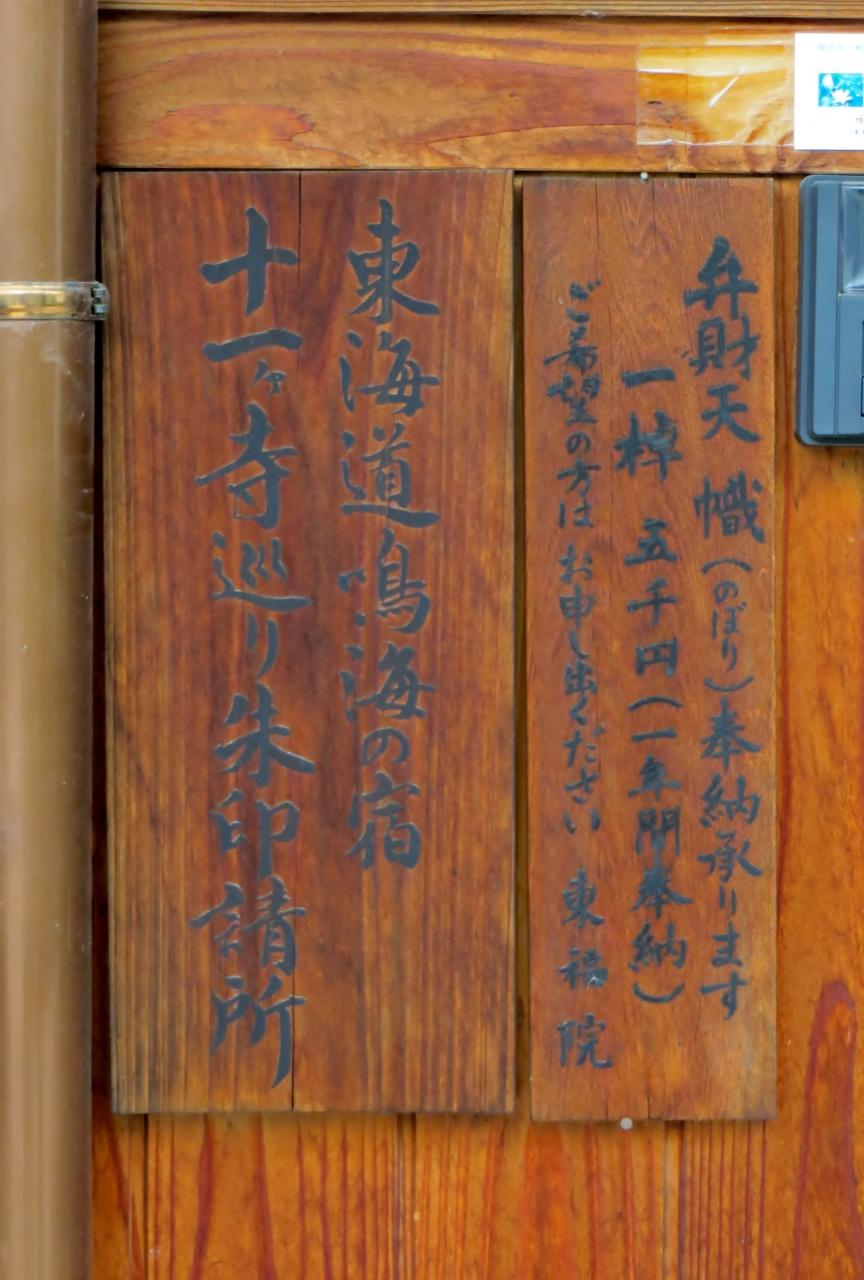 弁財天 幟(のぼり)奉納承ります
一棹 五千円(一年間奉納)
ご希望の方は お申し出ください 東福院
東海道鳴海の宿
十一ヶ寺巡り朱印請所